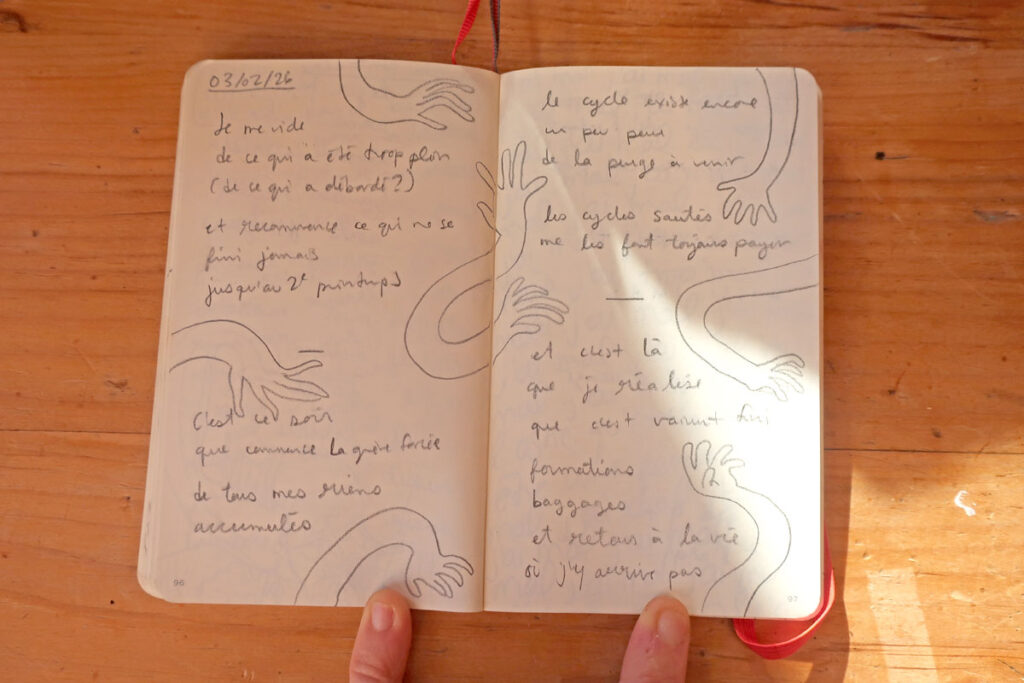 03/02/26
Je me vide
de ce qui a été trop plein
(de ce qui a débordé?)
et recommence ce qui ne se
fini jamais
jusqu'au 2e printemps
—
c'est ce soir
que commence la guerre forcée
de tous mes riens
accumulés
96
le cycle existe encore
un peu peur
de la purge à venir
les cycles sautés
me les font toujours payer
—
et c'est là
que je réalise
que c'est vraiment fini
formations
baggages
et retour à la vie
où j'y arrive pas
97